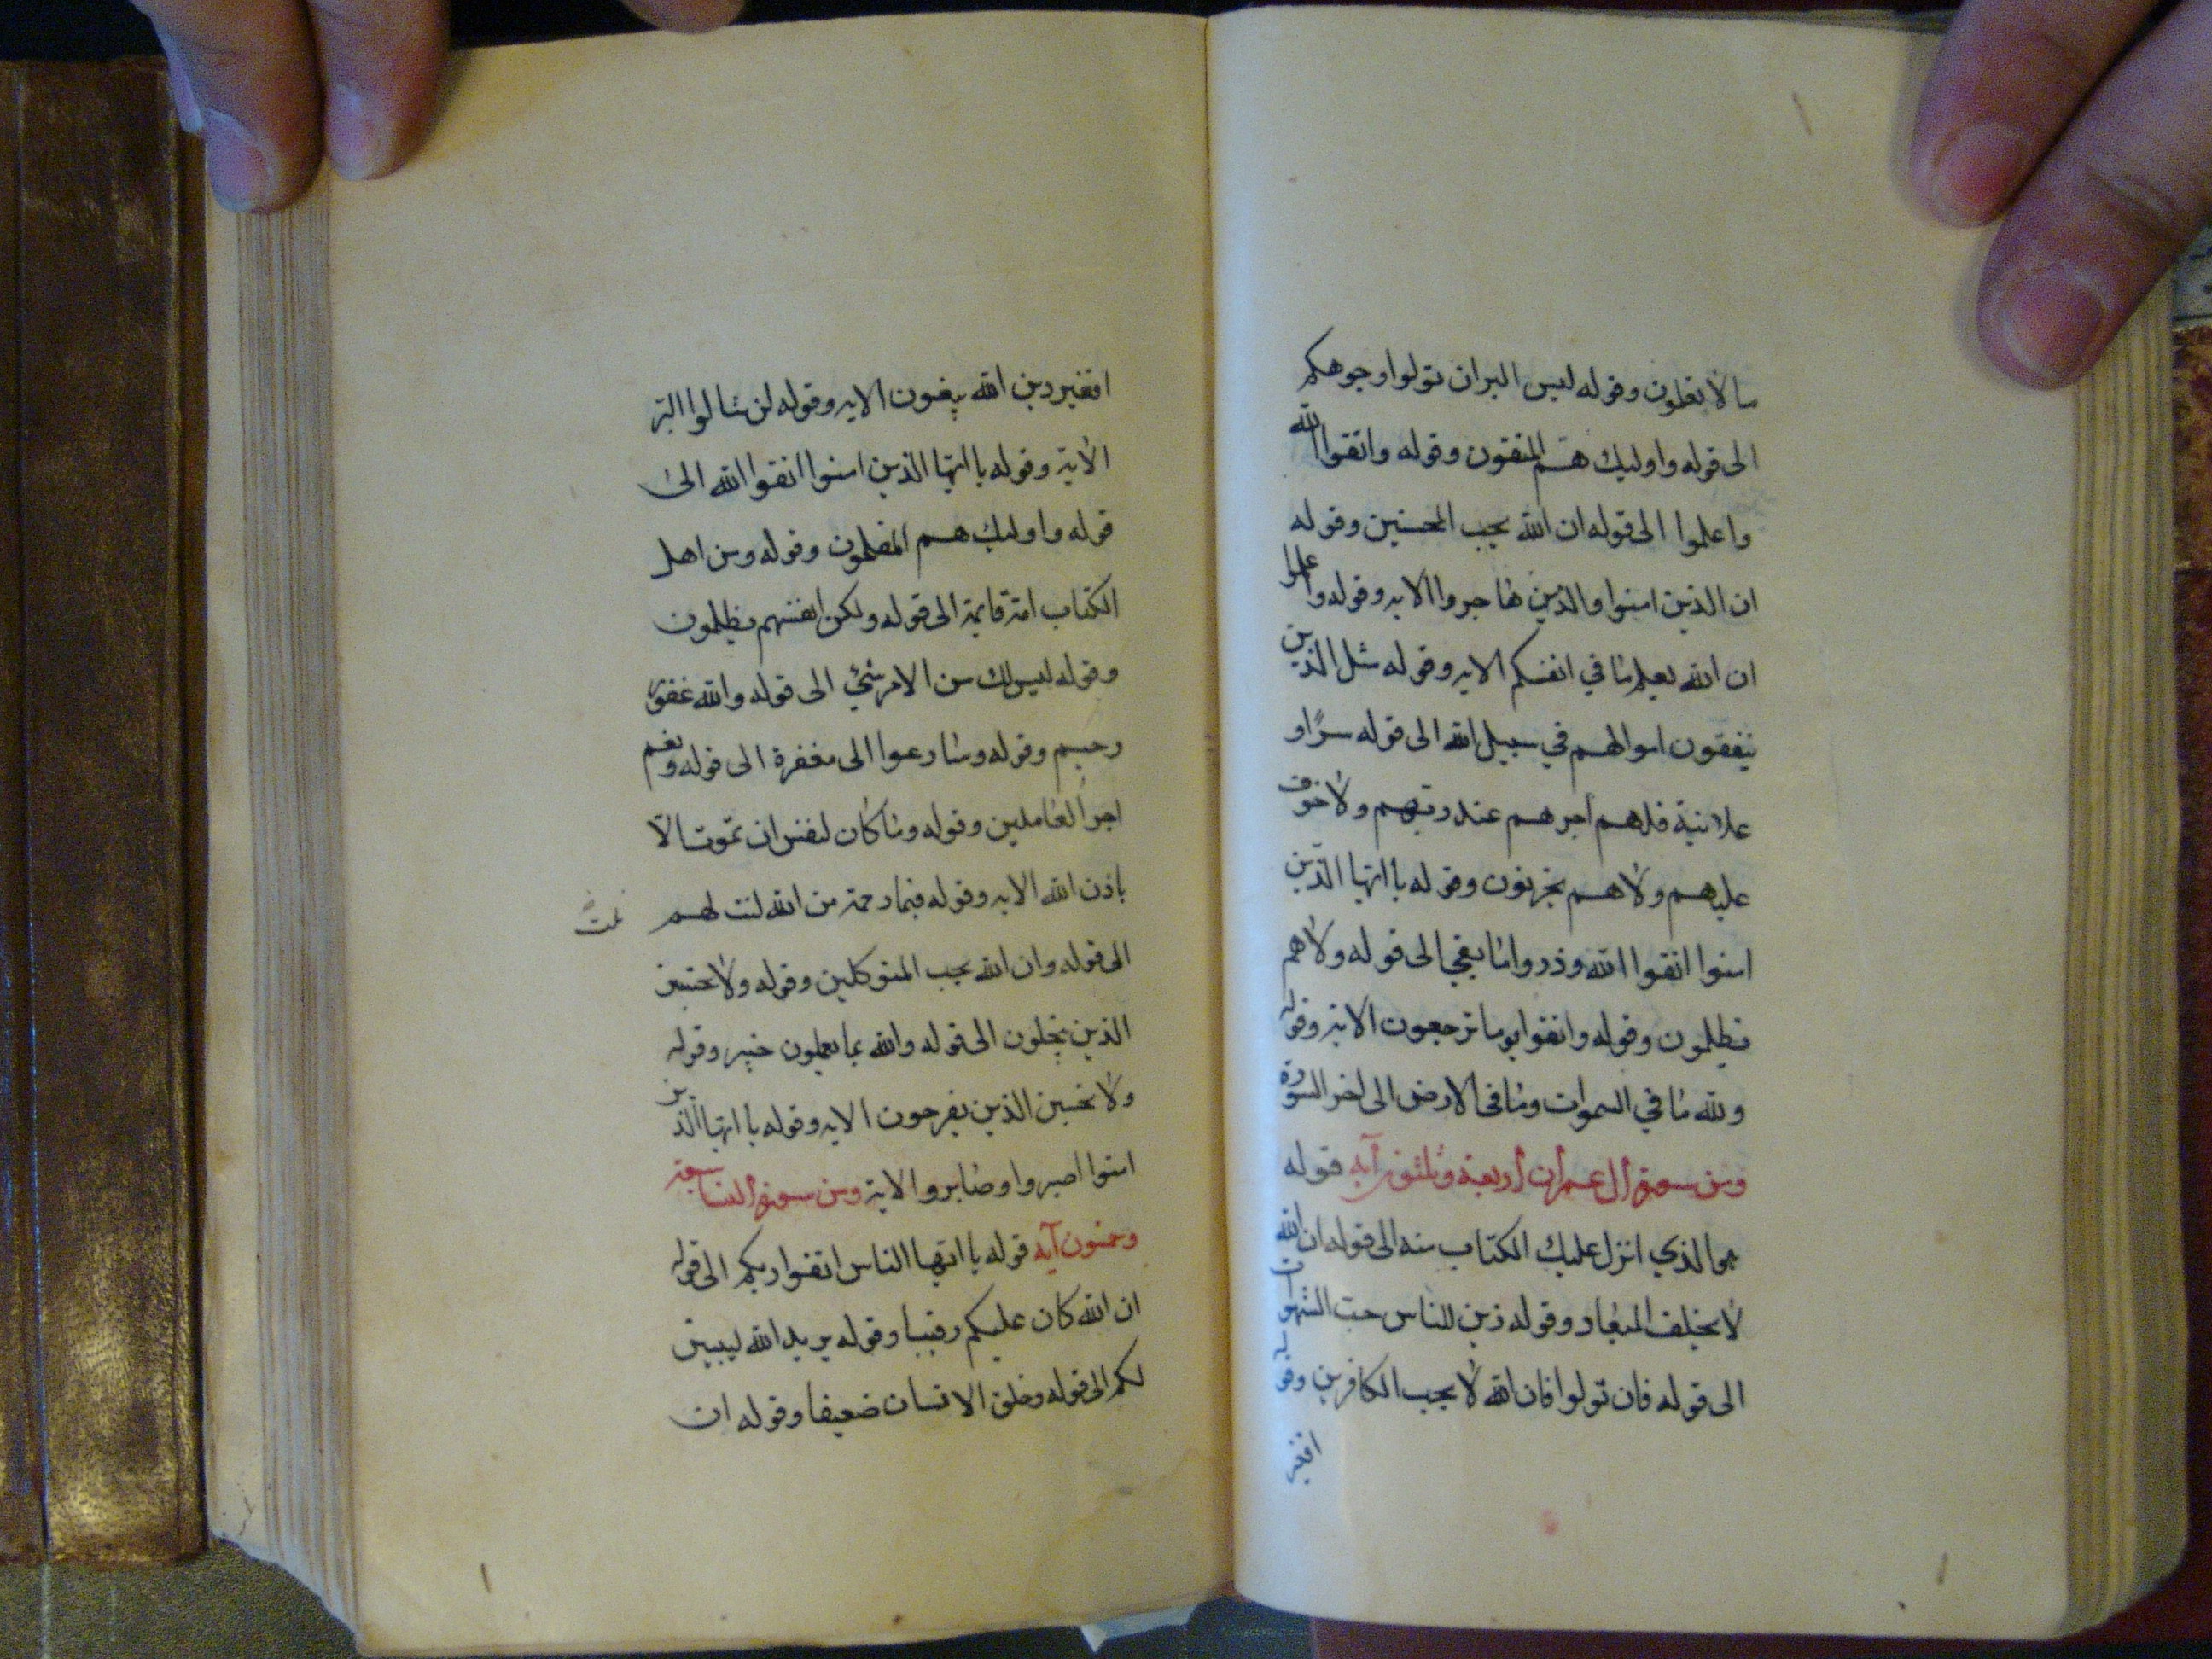 ما لا تعلمون وقوله ليس البر ان تولوا وجوهكم
الى قوله واوليك هم المتقون وقوله واتقوا الله
واعلموا الى قوله ان الله يحب المحسنين وقوله
ان الذين امنوا والذين هاجروا الايه وقوله واعلموا
ان الله يعلم ما في انفسكم الايه وقوله مثل الذين
ينفقون اموالهم في سبيل الله الى قوله سرًا و
علانية فلهم اجرهم عند ربهم ولا خوف
عليهم ولا هم يحزنون وقوله يا ايها الذين
امنوا اتقوا الله وذروا ما بقي الى قوله ولا هم
يظلمون وقوله واتقوا يوما ترجعون الاية وقوله
ولله ما في السموات وما في الارض الى اخر السورة
ومن سورة ال عمران اربعة وثلثون آية قوله
هو الذي انزل عليك الكتاب منه الى قوله ان الله
لا يخلف الميعاد وقوله زين للناس حب الشهوات
الى قوله فان تولوا فان الله لا يحب الكافرين وقوله
افغير
افغير دين الله يبغون الايه وقوله لن تنالوا البرّ
الاية وقوله يا ايها الذين امنوا اتقوا الله الى
قوله واوليك هم المفلحون وقوله ومن اهل
الكتاب امة قايمة الى قوله ولكن انفسهم يظلمون
وقوله ليس لك من الامر شئ الى قوله والله غفور
رحيم وقوله وسارعوا الى مغفرة الى قوله ونعم
اجر العاملين وقوله وما كان لنفس ان تموت الّا
باذن الله الايه وقوله فبما رحمة من الله لنت لهم
الى قوله وان الله يحب المتوكلين وقوله ولا تحسبن
الذين يبخلون الى قوله والله بما يعملون خبير وقوله
ولا تحسبن الذين يفرحون الايه وقوله يا ايها الذين
امنوا اصبروا وصابروا الاية ومن سورة النسا سبعة
وخمسون آية قوله يا ايها الناس اتقوا ربكم الى قوله
ان الله كان عليكم رقيبا وقوله يريد الله ليبين
لكم الى قوله وخلق الانسان ضعيفا وقوله ان